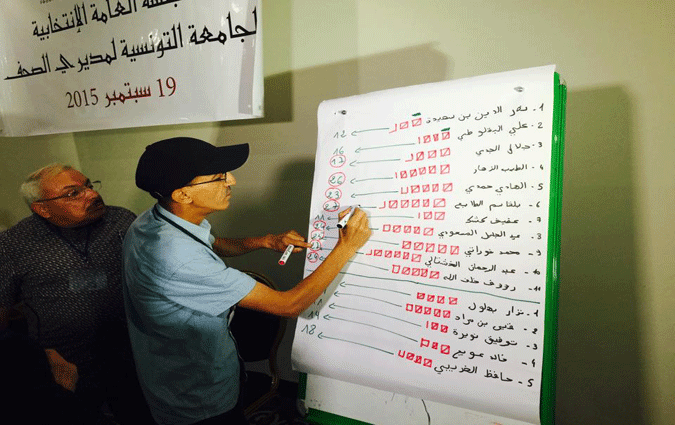 جلسة العامة الإنتخابية
لجامعة التونسية لمديري الصحف
19 سبتمبر 2015
1 - نصر الدين بن سعيدة 12
2 - علي البقلوطي 16
3 - جيلالي الجدي 17
4 - الطيب الزهار 26
5 - الهادي حمدي 23
6 - بلقاسم الطايع 27
7 - عفيف 11
8 - عبد الجليل المسعودي
9 - محمد
10 - عبد الرحمان
11 - رؤوف خلف الله
1 - نزار بهلول
2 - بن مراد
3 - توفيق نويرة
4 - 14
5 - حافظ الغريبي 18